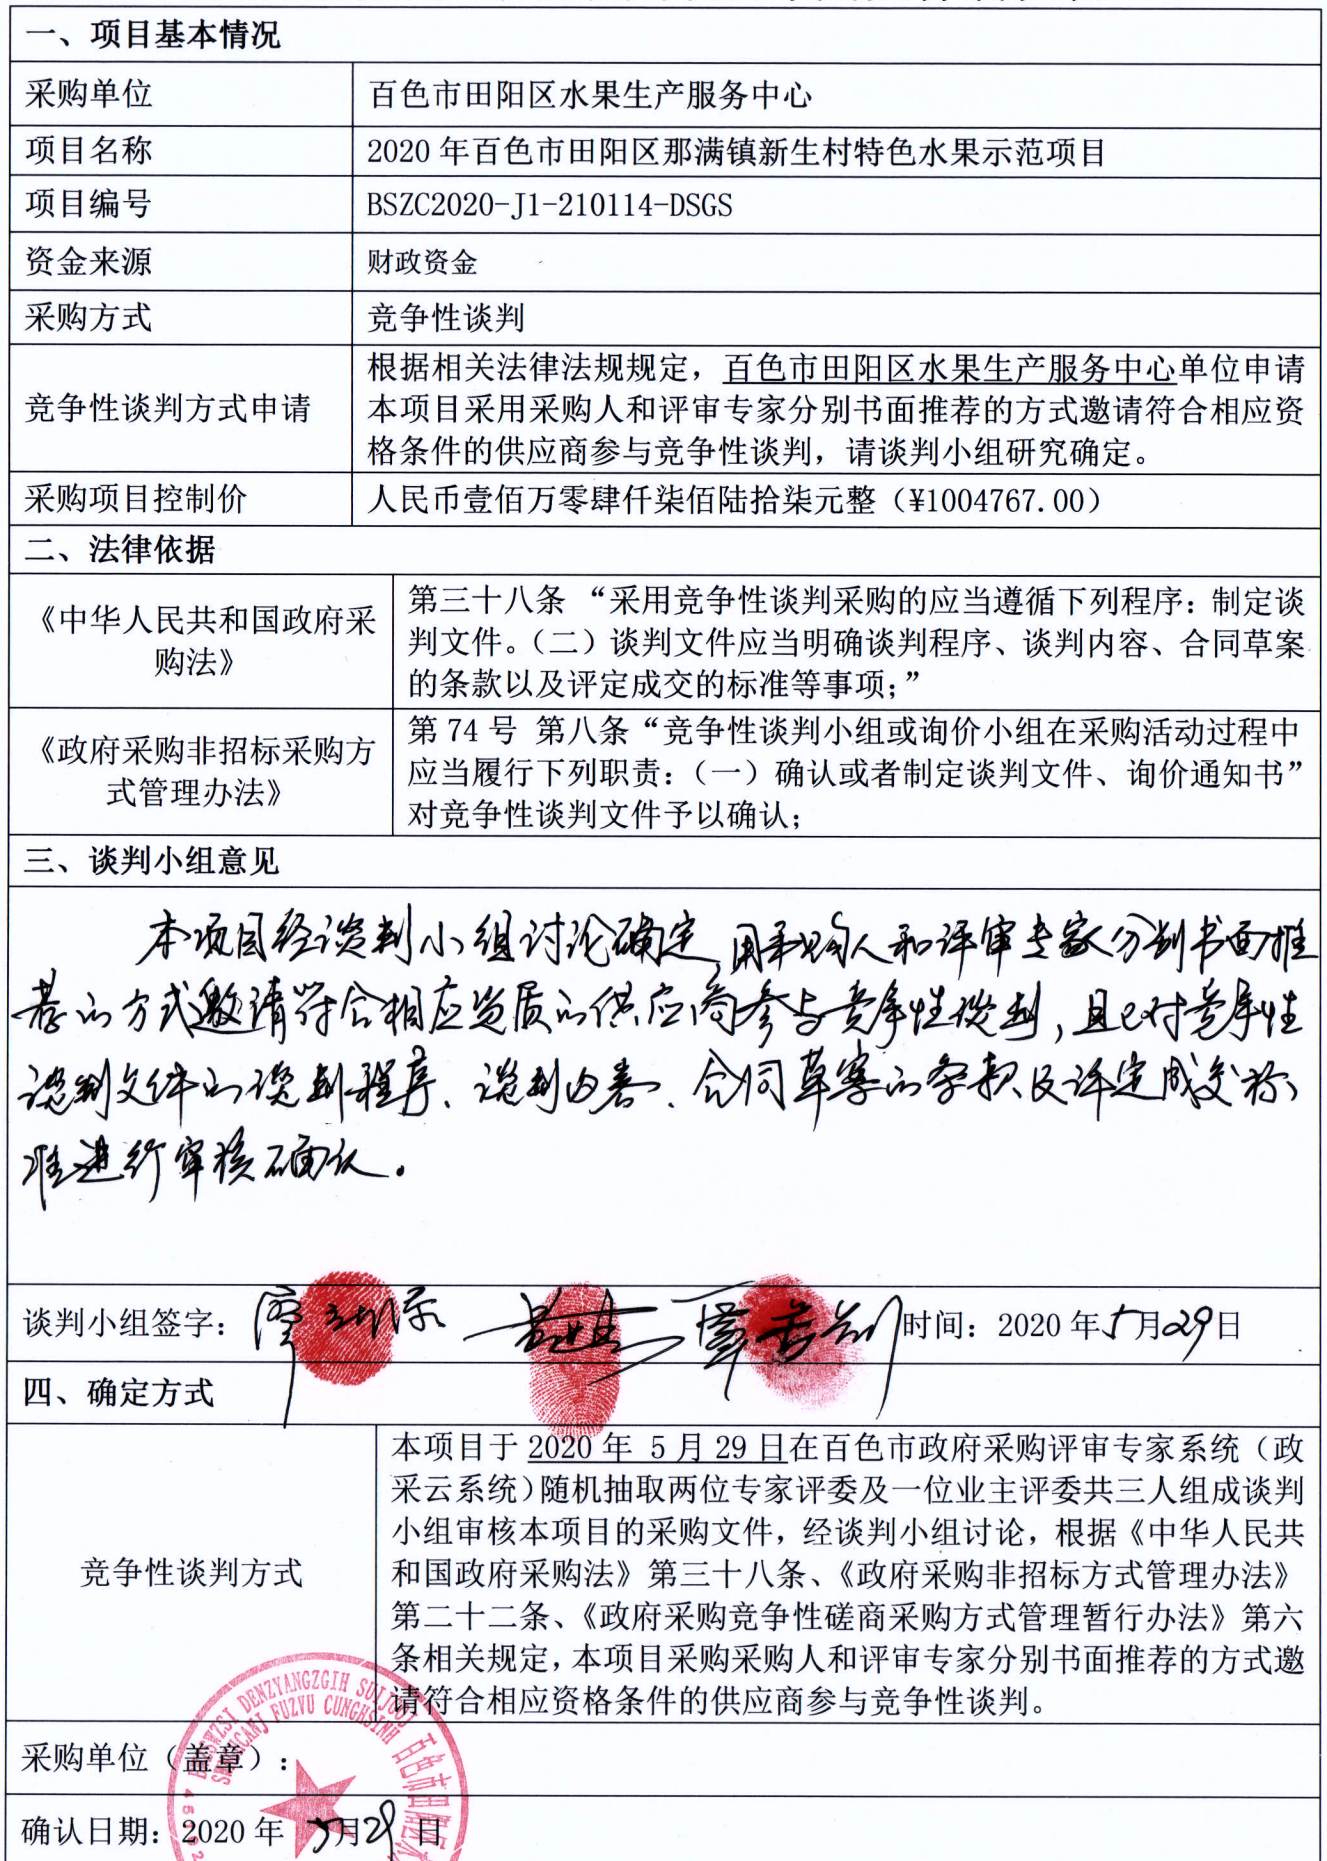 一、项目基本情况
采购单位 百色市田阳区水果生产服务中心
项目名称 2020年百色市田阳区那满镇新生村特色水果示范项目
项目编号 BSZC2020-J1-210114-DSGS
资金来源 财政资金
采购方式 竞争性谈判
竞争性谈判方式申请
根据相关法律法规规定，百色市田阳区水果生产服务中心单位申请
本项目采用采购人和评审专家分别书面推荐的方式邀请符合相应资
格条件的供应商参与竞争性谈判，请谈判小组研究确定。
采购项目控制价 人民币壹佰万零肆仟柒佰陆拾柒元整（¥1004767.00）
二、法律依据
《中华人民共和国政府采
购法》
第三十八条 “采用竞争性谈判采购的应当遵循下列程序：制定谈
判文件。（二）谈判文件应当明确谈判程序、谈判内容、合同草案
的条款以及评定成交的标准等事项；”
《政府采购非招标采购方
式管理办法》
第 74 号 第八条“竞争性谈判小组或询价小组在采购活动过程中
应当履行下列职责：（一）确认或者制定谈判文件、询价通知书”
对竞争性谈判文件予以确认；
三、谈判小组意见
本项目经谈判小组讨论确定，用采购人和评审专家分别书面推
荐的方式邀请符合相应资质的供应商参与竞争性谈判，且已对竞争性
谈判文件的谈判程序、谈判内容、合同草案的条款及评定成交标
准进行审核确认。
谈判小组签字： 时间：2020 年 5 月 29 日
四、确定方式
竞争性谈判方式
本项目于 2020 年 5 月 29 日在百色市政府采购评审专家系统（政
采云系统）随机抽取两位专家评委及一位业主评委共三人组成谈判
小组审核本项目的采购文件，经谈判小组讨论，根据《中华人民共
和国政府采购法》第三十八条、《政府采购非招标方式管理办法》
第二十二条、《政府采购竞争性磋商采购方式管理暂行办法》第六
条相关规定，本项目采购采购人和评审专家分别书面推荐的方式邀
请符合相应资格条件的供应商参与竞争性谈判。
采购单位（盖章）：
确认日期：2020 年 5 月 29 日